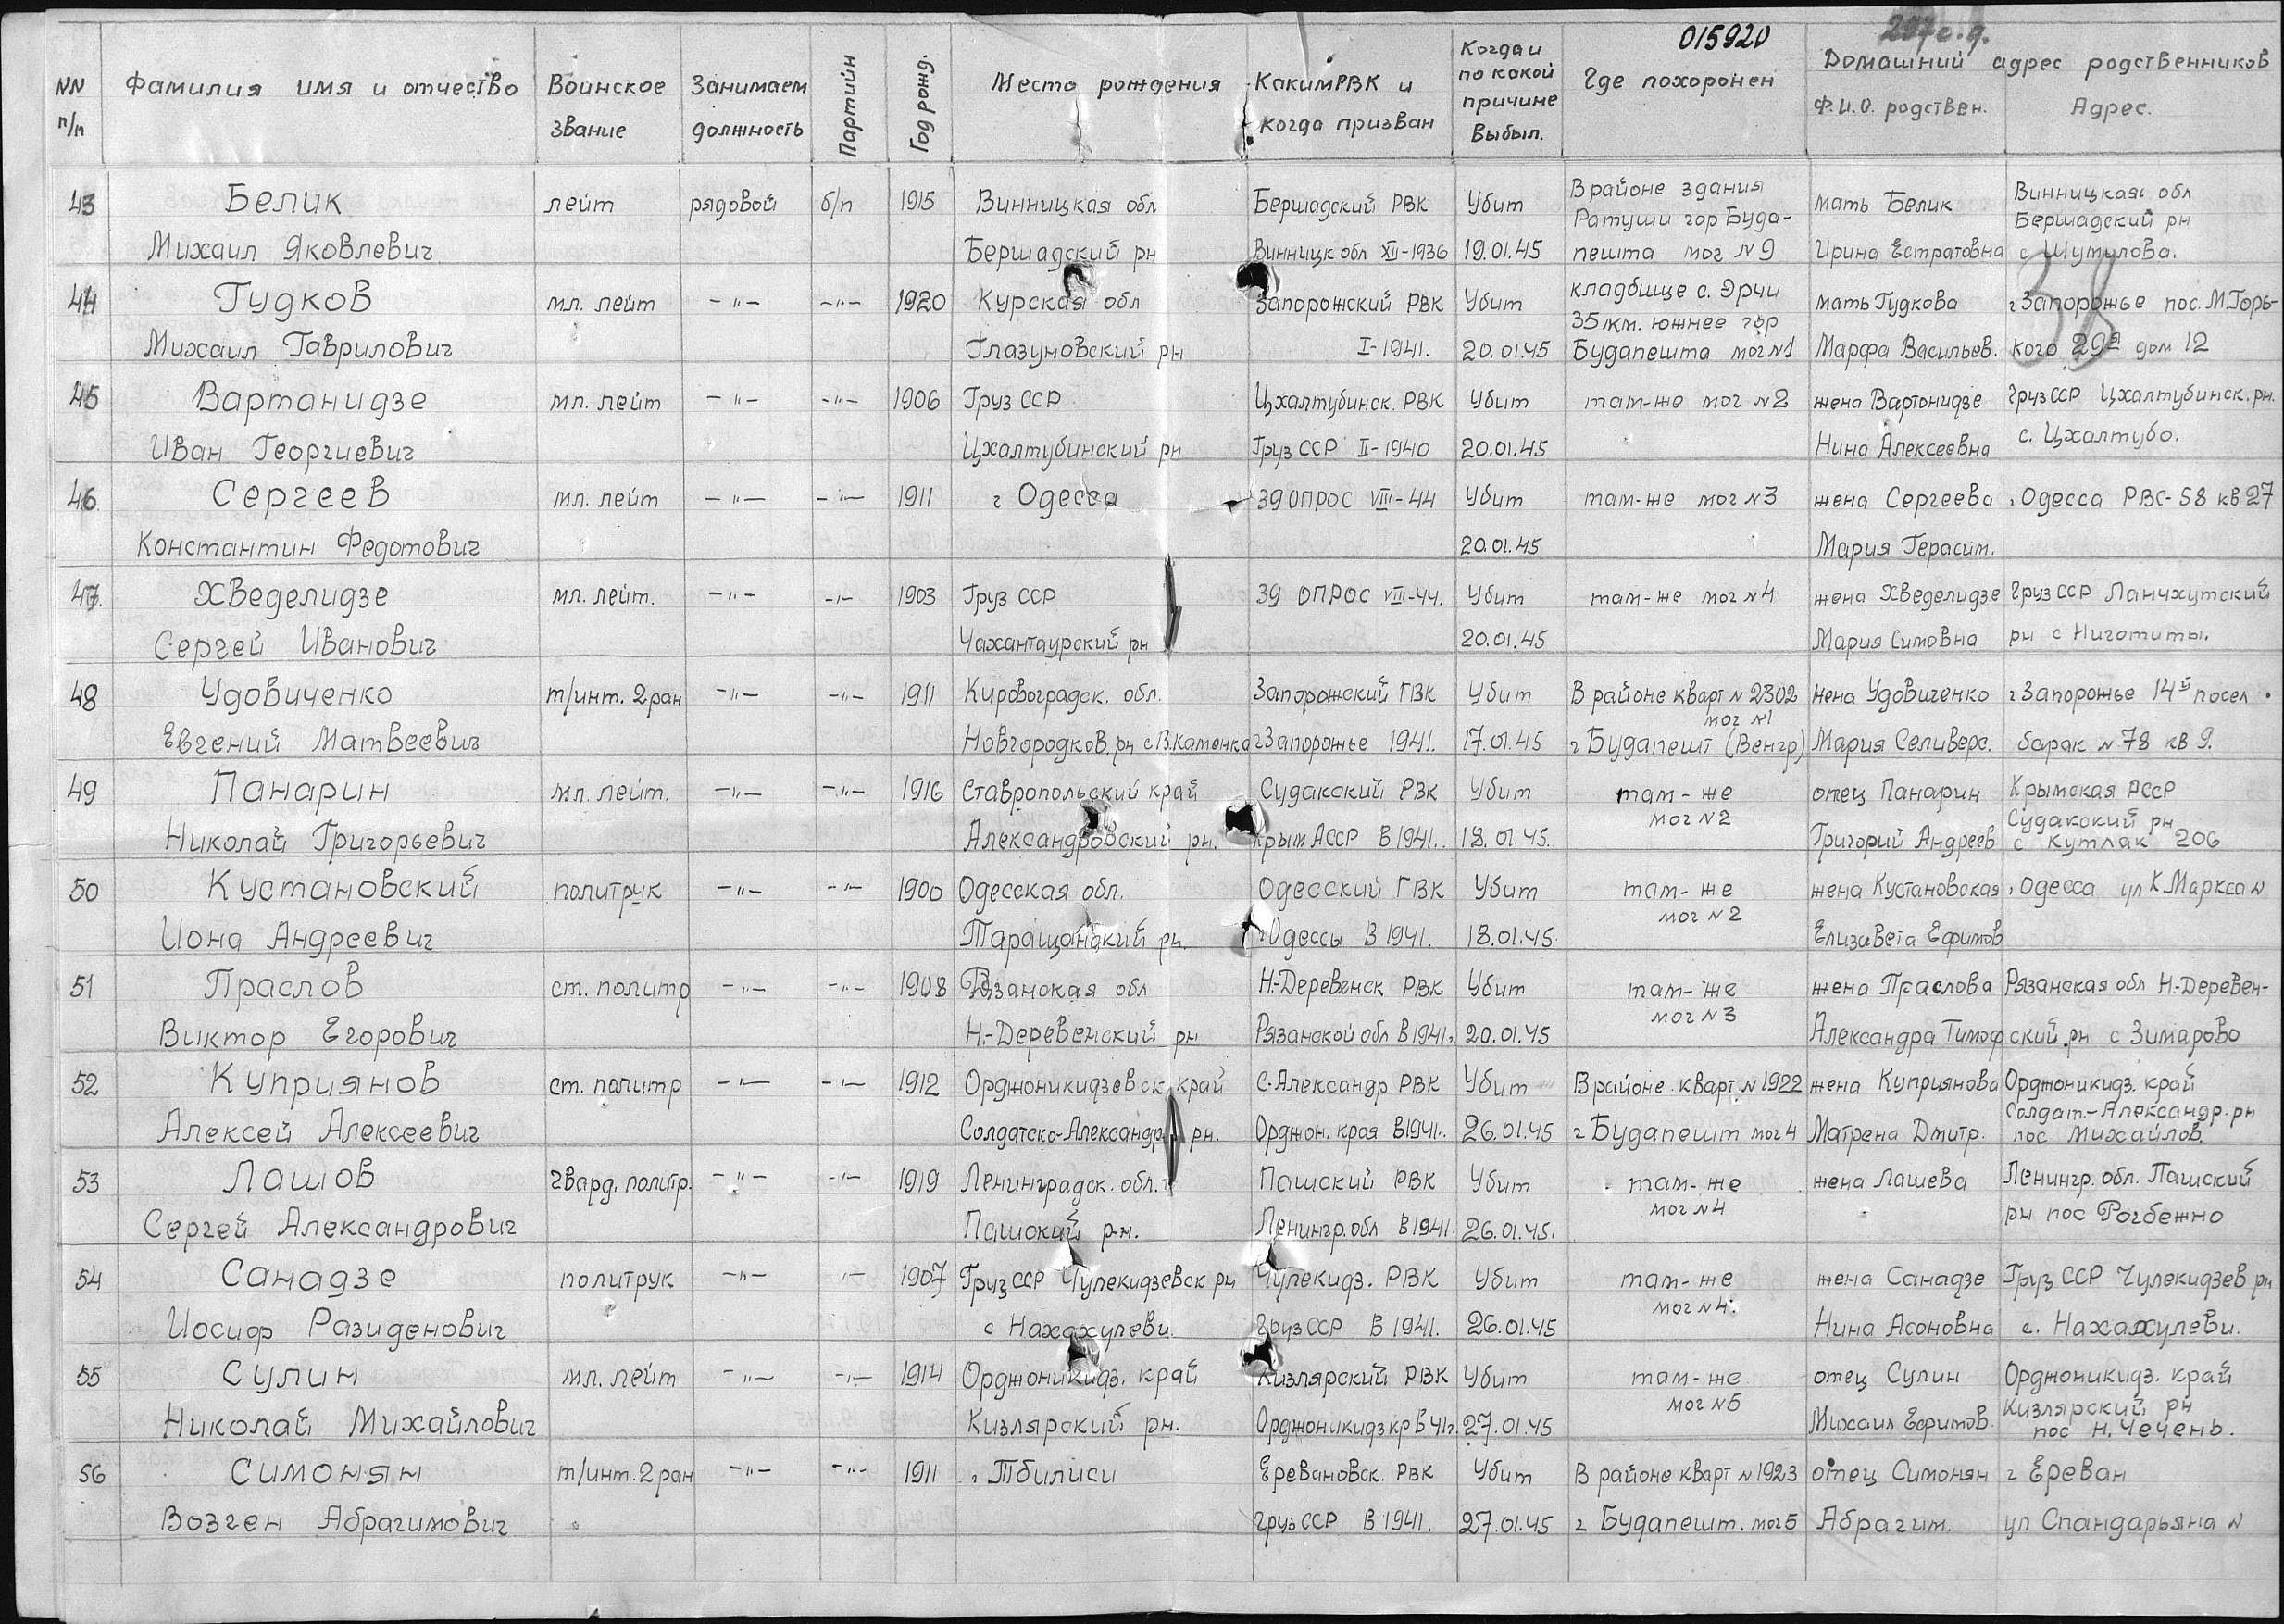 015920
297 с.д.
NN п/п Фамилия имя и отчество Воинское звание Занимаем должность Партийн Год рожд. Место рождения Каким РВК и когда призван Когда и по какой причине выбыл. Где похоронен Домашний адрес родственников
Ф.И.О. родствен. Адрес.
43 Белик лейт рядовой б/п 1915 Винницкая обл Бершадский РВК Убит В районе здания Ратуши гор Буда- мать Белик Винницкая обл Бершадский рн
Михаил Яковлевич Бершадский рн Винницк обл XII-1936 19.01.45 пешта мог N 9 Ирина Естратовна с Шумилова.
38
44 Гудков мл. лейт -"- -"- 1920 Курская обл Запорожский РВК Убит кладбище с. Эрчи 35 км. южнее гор мать Гудкова г Запорожье пос. М.Горь-
Михаил Гаврилович Глазуновский рн I-1941. 20.01.45 Будапешта мог N1 Марфа Васильев. кого 29а дом 12
45 Вартанидзе мл. лейт -"- -"- 1906 Груз ССР Цхалтубинск. РВК Убит там-же мог N2 жена Вартонидзе Груз ССР Цхалтубинск. рн.
Иван Георгиевич Цхалтубинский рн Груз ССР II-1940 20.01.45 Нина Алексеевна с. Цхалтубо.
46 Сергеев мл. лейт -"- -"- 1911 г Одесса 39 ОПРОС VIII-44 Убит там-же мог N3 жена Сергеева г Одесса РВС-58 кв 27
Константин Федотович 20.01.45 Мария Герасим.
47. Хведелидзе мл. лейт. -"- -"- 1903 Груз ССР 39 ОПРОС VIII-44. Убит там-же мог N4 жена Хведелидзе Груз ССР Ланчхутский
Сергей Иванович Чахантаурский рн 20.01.45 Мария Симовна рн с Ниготиты.
48 Удовиченко т/инт. 2 ран -"- -"- 1911 Кировоградск. обл. Запорожский ГВК Убит В районе кварт N 2302 мог N1 жена Удовиченко г Запорожье 14й посел.
Евгений Матвеевич Новгородков. рн с В.Каменка г Запорожье 1941. 17.01.45 г Будапешт (Венгр) Мария Селиверс. барак N 78 кв 9.
49 Панарин мл. лейт. -"- -"- 1916 Ставропольский край Судакский РВК Убит там-же мог N2 отец Панарин Крымская АССР Судакский рн
Николай Григорьевич Александровский рн. Крым АССР В 1941. 18.01.45. Григорий Андреев с Кутлак 206
50 Кустановский политрук -"- -"- 1900 Одесская обл. Одесский ГВК Убит там-же мог N2 жена Кустановская г Одесса ул К.Маркса N
Иона Андреевич Таращанский рн. г Одессы В 1941. 18.01.45. Елизавета Ефимов
51 Праслов ст. политр -"- -"- 1908 Рязанская обл Н.-Деревенск РВК Убит там-же мог N3 жена Праслова Рязанская обл Н.-Деревен-
Виктор Егорович Н.-Деревенский рн Рязанской обл В 1941г. 20.01.45 Александра Тимоф ский рн с Зимарово
52 Куприянов ст. политр -"- -"- 1912 Орджоникидзевск край С-Александр РВК Убит В районе кварт N 1922 жена Куприянова Орджоникидз. край Солдат.-Александр. рн
Алексей Алексеевич Солдатско-Александр. рн. Орджон. края В 1941. 26.01.45 г Будапешт мог 4 Матрена Дмитр. пос Михайлов.
53 Лашов гвард. политр. -"- -"- 1919 Ленинградск. обл. Пашский РВК Убит там-же мог N4 жена Лашева Ленингр. обл. Пашский
Сергей Александрович Пашский р-н. Ленингр. обл В 1941. 26.01.45. рн пос Рогбежно
54 Санадзе политрук -"- -"- 1907 Груз ССР Чулекидзевск рн Чулекидз. РВК Убит там-же мог N4. жена Санадзе Груз ССР Чулекидзев рн
Иосиф Разиденович с Нахахулеви Груз ССР В 1941. 26.01.45 Нина Асоновна с. Нахахулеви.
55 Сулин мл. лейт -"- -"- 1914 Орджоникидз. край Кизлярский РВК Убит там-же мог N5 отец Сулин Орджоникидз. край Кизлярский рн
Николай Михайлович Кизлярский рн. Орджоникидз кр В 41г. 27.01.45 Михаил Ефимов. пос Н. Чечень.
56 Симонян т/инт. 2 ран -"- -"- 1911 г Тбилиси Еревановск. РВК Убит В районе кварт N 1923 отец Симонян г Ереван
Возген Абрагимович Груз ССР В 1941. 27.01.45 г Будапешт. мог 5 Абрагим. ул Спандарьяна N